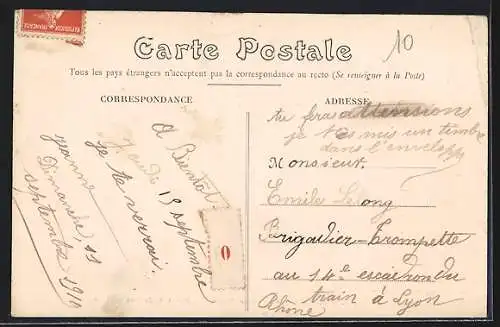 REPUBLIQUE FRANÇAISE
10
Carte Postale
Tous les pays étrangers n'acceptent pas la correspondance au recto (Se renseigner à la Poste)
CORRESPONDANCE
A Bientôt
Jeudi 15 septembre
je te verrai.
Jeanne
Dimanche, 11
septembre 1910
0
ADRESSE
tu feras attensions
je t'es mis un timbre
dans l'enveloppe
Monsieur
Emile Lelong
Brigadier-Trompette
au 14e escadron du
train à Lyon
Rhône